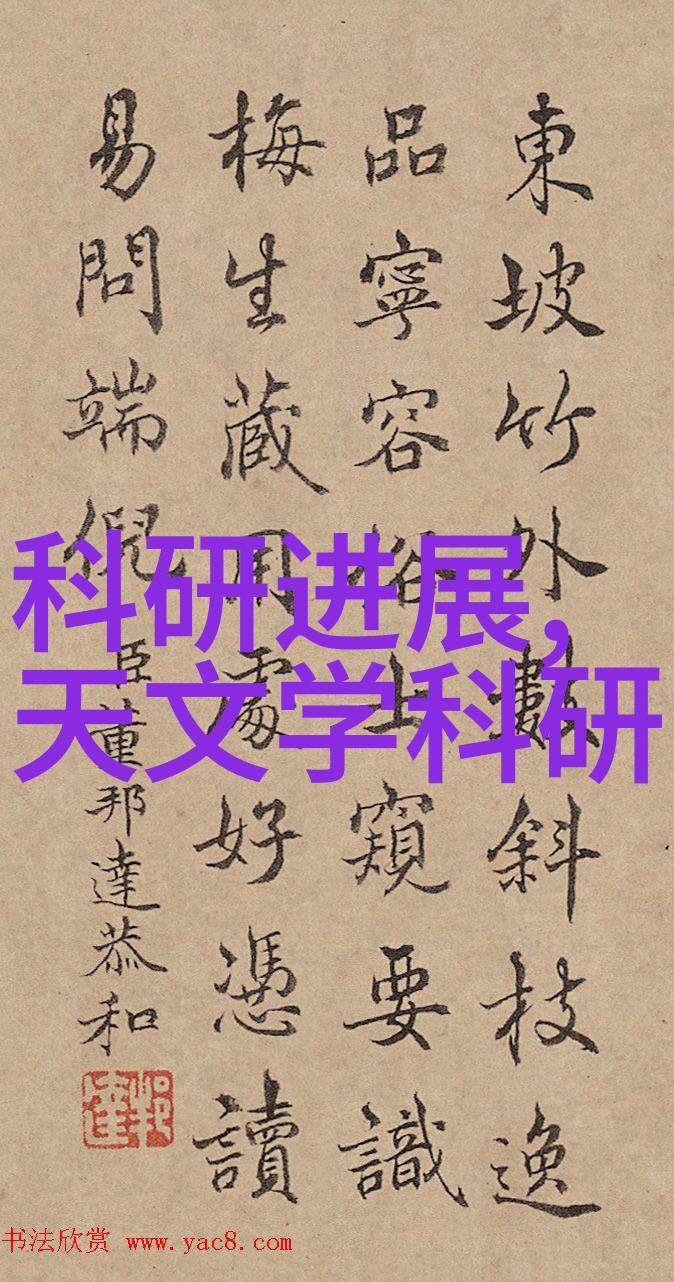 東坡竹外數斜枝逸
品寧容俗士窺要識
梅生藏用處好憑讀
易問端倪 臣董邦達恭和
科研进展,
天文学科研
书法欣赏 www.yac8.com